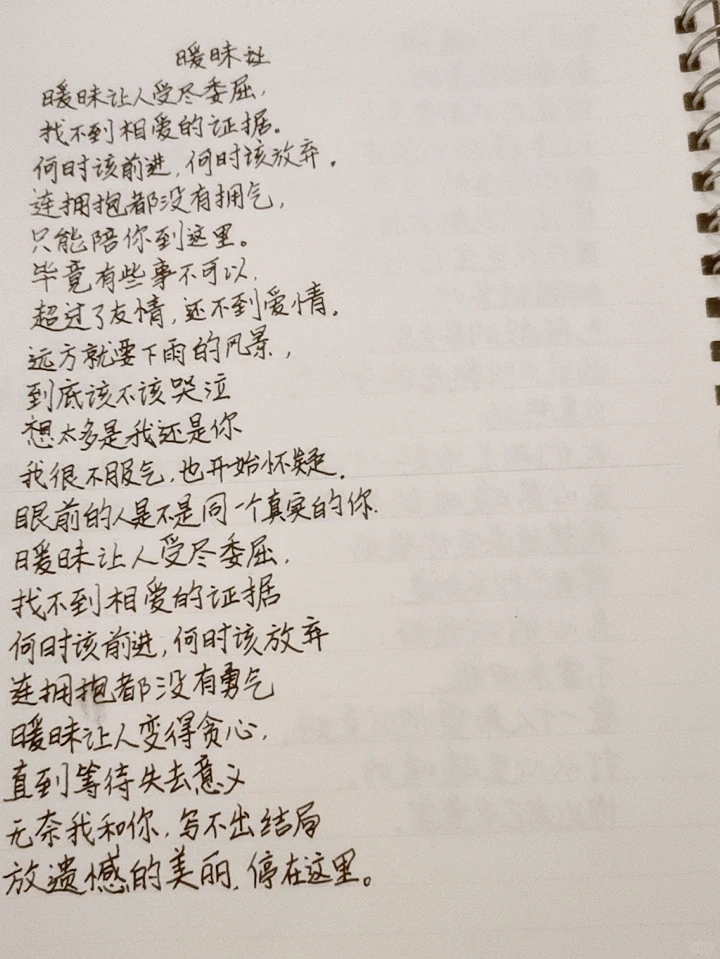 暖昧让
暖昧让人受尽委屈,
找不到相爱的证据。
何时该前进,何时该放弃。
连拥抱都没有拥气,
只能陪你到这里。
毕竟有些事不可以,
超过了友情,还不到爱情。
远方就要下雨的风景,
到底该不该哭泣
想太多是我还是你
我很不服气,也开始怀疑.
眼前的人是不是同一个真实的你.
暖昧让人受尽委屈,
找不到相爱的证据
何时该前进,何时该放弃
连拥抱都没有勇气
暖昧让人变得贪心,
直到等待失去意义
无奈我和你,写不出结局
放遗憾的美丽,停在这里。